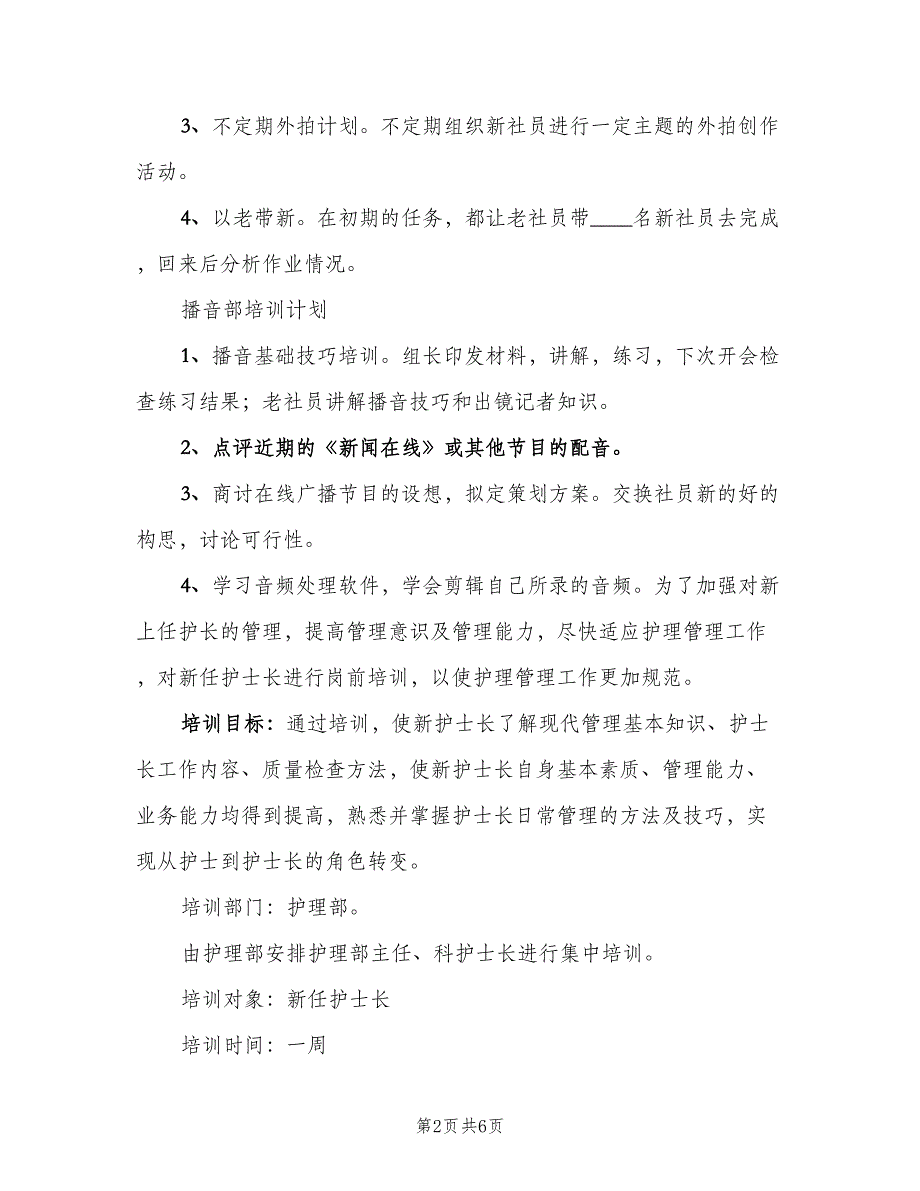 3、不定期外拍计划。不定期组织新社员进行一定主题的外拍创作
活动。
4、以老带新。在初期的任务，都让老社员带____名新社员去完成
，回来后分析作业情况。
播音部培训计划
1、播音基础技巧培训。组长印发材料，讲解，练习，下次开会检
查练习结果；老社员讲解播音技巧和出镜记者知识。
2、点评近期的《新闻在线》或其他节目的配音。
3、商讨在线广播节目的设想，拟定策划方案。交换社员新的好的
构思，讨论可行性。
4、学习音频处理软件，学会剪辑自己所录的音频。为了加强对新
上任护长的管理，提高管理意识及管理能力，尽快适应护理管理工作
，对新任护士长进行岗前培训，以使护理管理工作更加规范。
培训目标：通过培训，使新护士长了解现代管理基本知识、护士
长工作内容、质量检查方法，使新护士长自身基本素质、管理能力、
业务能力均得到提高，熟悉并掌握护士长日常管理的方法及技巧，实
现从护士到护士长的角色转变。
培训部门：护理部。
由护理部安排护理部主任、科护士长进行集中培训。
培训对象：新任护士长
培训时间：一周
第2页共6页